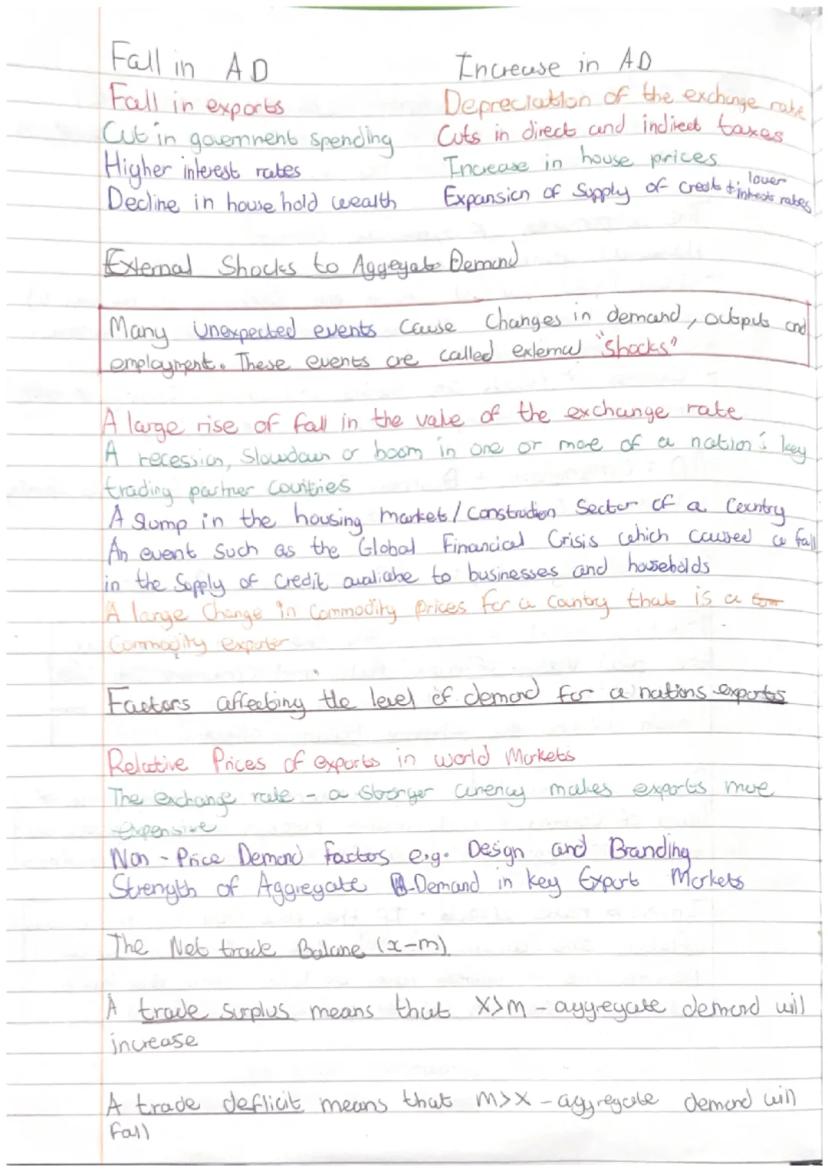 Fall in AD
Fall in exports
Cut in government spending
Higher interest rates
Decline in household wealth
Increase in AD
Depreciation of the exchange rate
Cuts in direct and indirect taxes
Increase in house prices
Expansion of Supply of Credit + lower interests rates
External Shocks to Aggregate Demand
Many Unexpected events cause Changes in demand, outputs and
employment. These events are called external "Shocks"
A large rise of fall in the value of the exchange rate
A recession, Slowdown or boom in one or more of a nation's key
trading partner countries
A slump in the housing market/Construction Sector of a Country
An event such as the Global Financial Crisis which caused a fall
in the Supply of Credit avaliabe to businesses and households
A large Change in Commodity prices for a Country that is a com
Commodity exporter
Factors affecting the level of demand for a nations exports
Relative Prices of exports in world Markets
The exchange rate - a stronger currency makes exports more
expensive
Non-Price Demand factors e.g. Design and Branding
Strength of Aggregate Demand in key Export Markets
The Net trade Balane (x-m)
A trade surplus means that X>M - aggregate demand will
increase
A trade deflicit means that M>X - aggregate demand will
fall